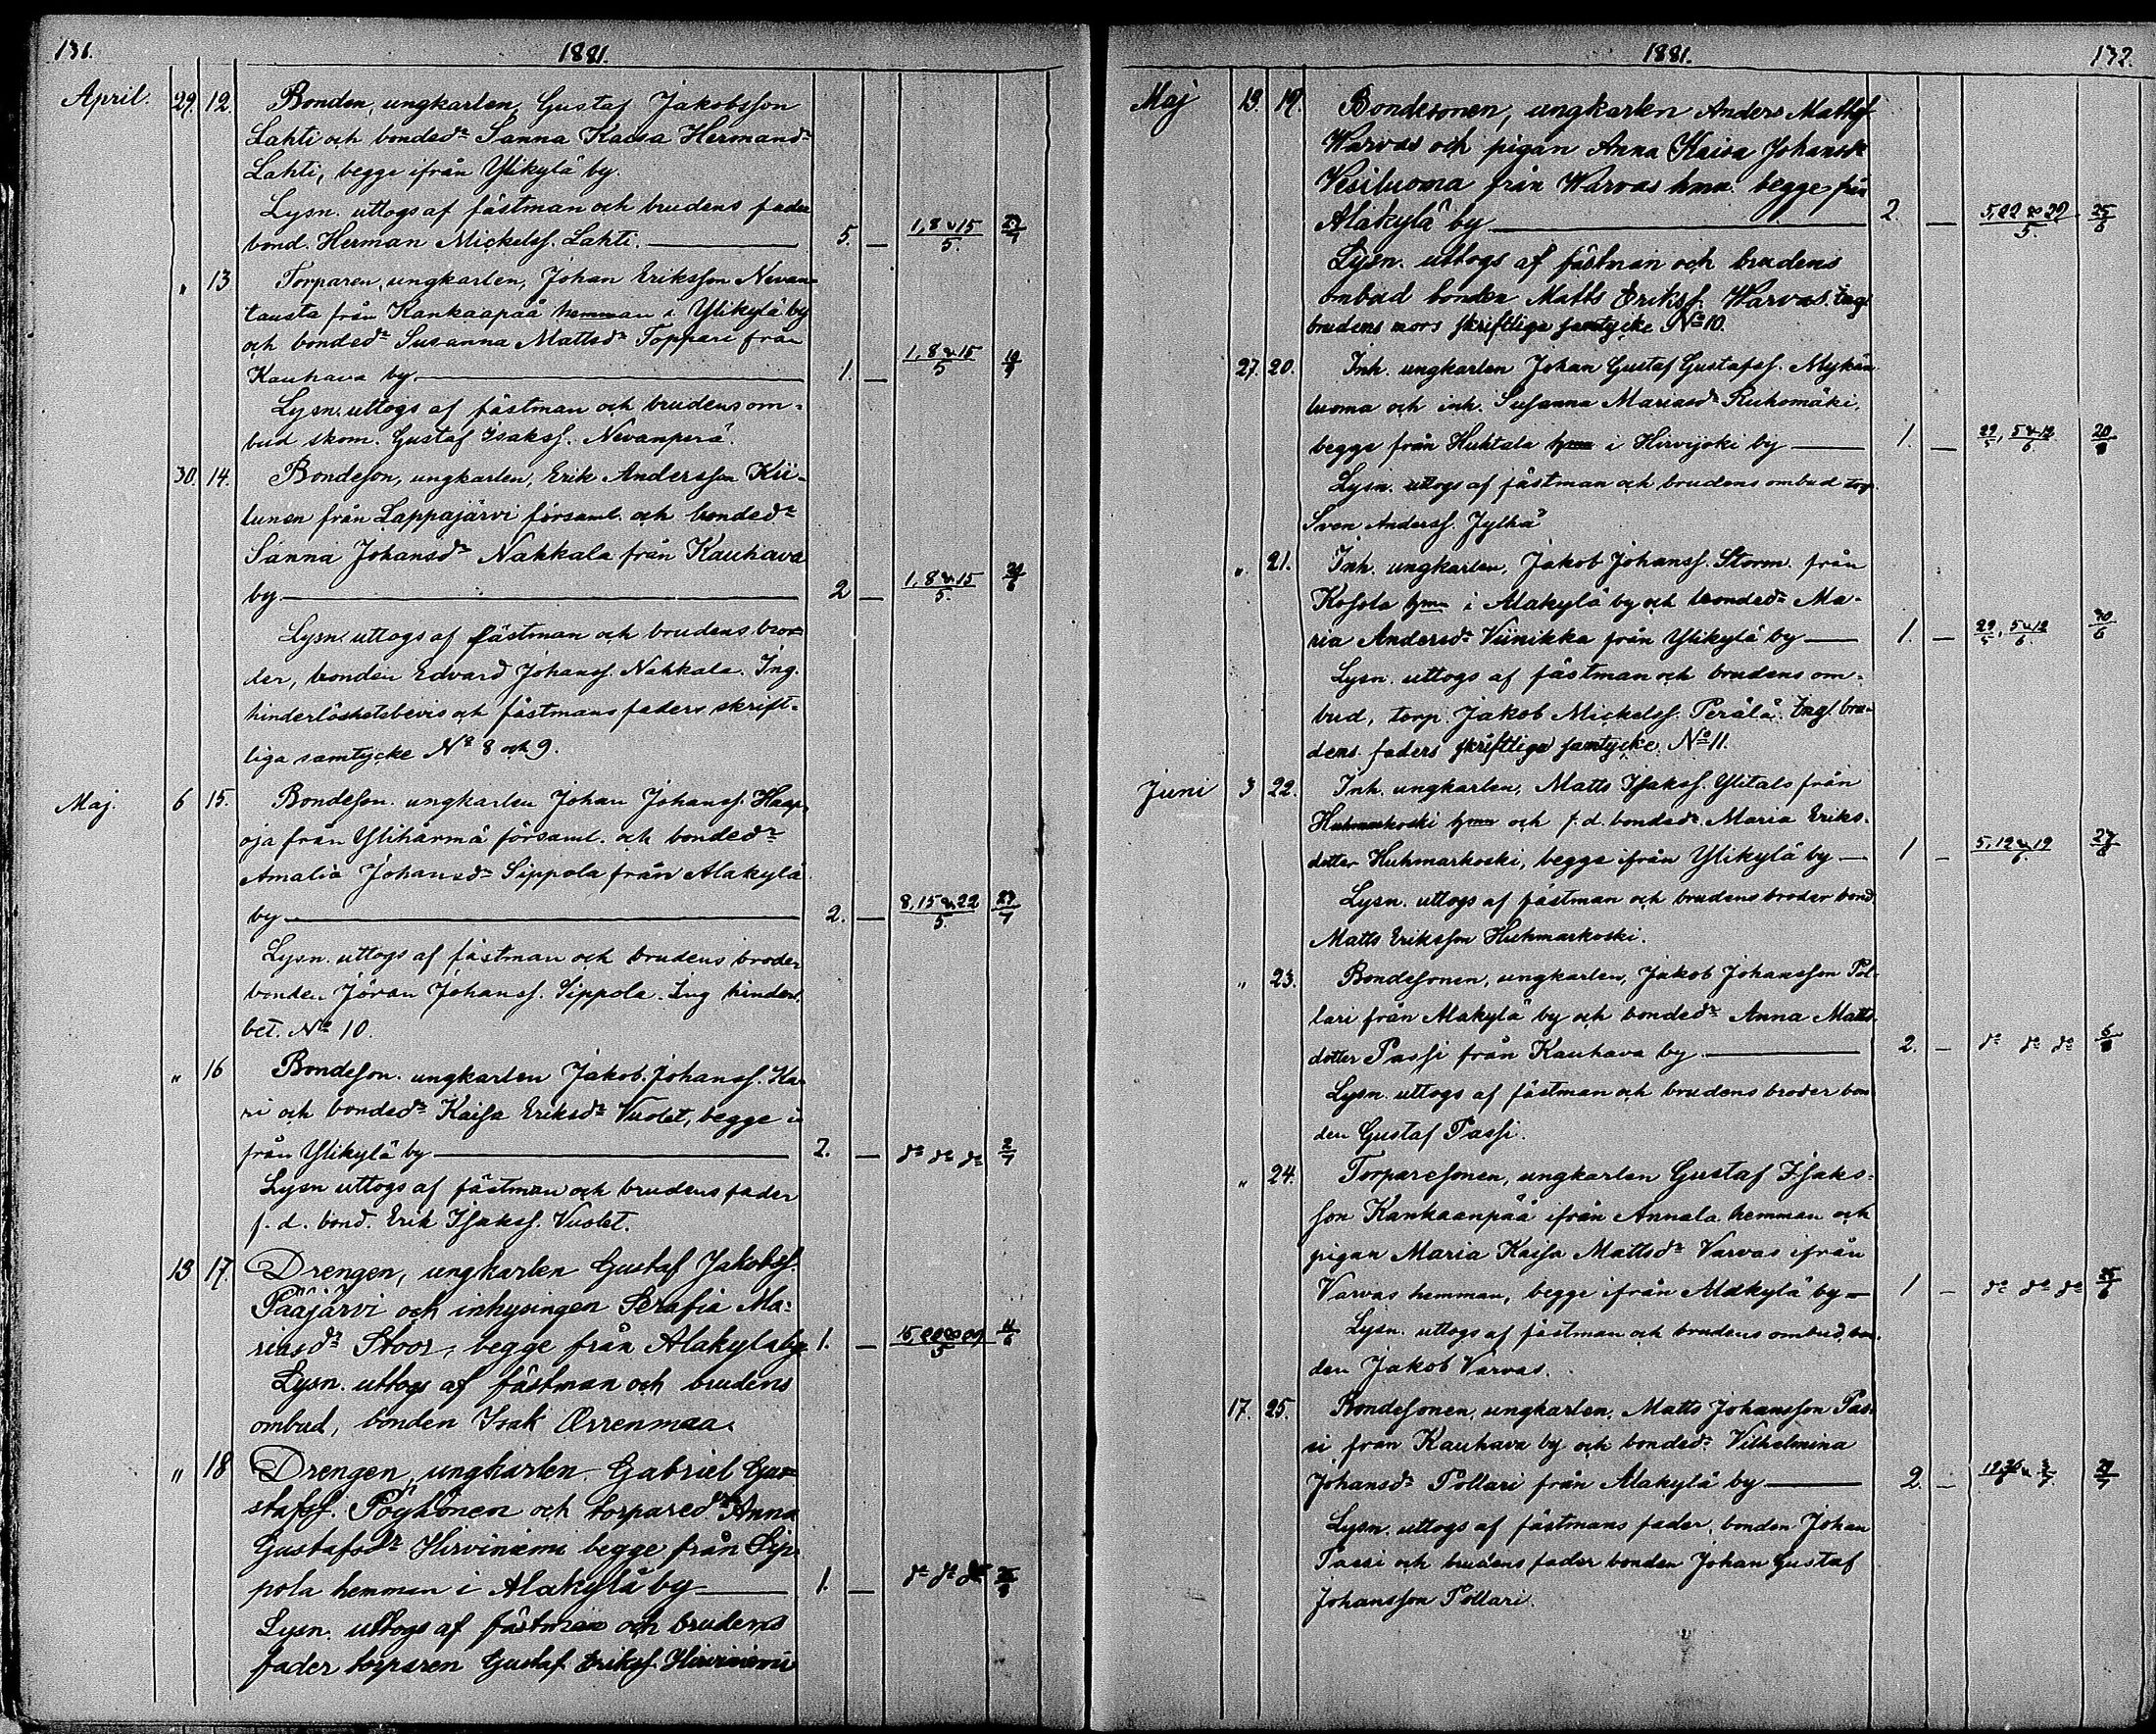 131.
1881.
April. 29. 12. Bonden, ungkarlen, Gustaf Jakobsson
Lahti och bondedr Sanna Kaisa Hermandr
Lahti, begge ifrån Ylikylä by.
Lysn. uttogs af fästman och brudens fader
bond. Herman Mickelss. Lahti. 5. — 1, 8 & 15/5
" 13 Torparen, ungkarlen, Johan Eriksson Nevan-
tausta från Kankaapää hemman i Ylikylä by
och bondedr Susanna Mattsdr Toppari från
Kauhava by 1. — 1, 8 & 15/5
Lysn. uttogs af fästman och brudens om-
bud skom. Gustaf Isakss. Nevanperä.
30. 14. Bondeson, ungkarlen, Erik Andersson Kii-
lunen från Lappajärvi församl. och bondedr
Sanna Johansdr Nahkala från Kauhava
by 2 — 1, 8 & 15/5.
Lysn. uttogs af fästman och brudens bro-
der, bonden Edvard Johanss. Nahkala. Ing.
hinderlöshetsbevis och fästmans faders skrift-
liga samtycke No 8 och 9.
Maj. 6 15. Bondeson. ungkarlen Johan Johanss. Haap-
oja från Ylihärmä församl. och bondedr
Amalia Johansdr Sippola från Alakylä
by 2. — 8, 15 & 22/5.
Lysn. uttogs af fästman och brudens broder
bonden Jöran Johanss. Sippola. Ing hinders.
bet. No 10.
" 16 Bondeson. ungkarlen Jakob Johanss. Ka-
ri och bondedr Kaisa Eriksdr Vuolet, begge i-
från Ylikylä by 2. — do do do 2/7
Lysn uttogs af fästman och brudens fader
f. d. bond. Erik Isakss. Vuolet.
13 17. Drengen, ungkarlen Gustaf Jakobss.
Pääjärvi och inhysingen Serafia Ma-
riasdr Stoor, begge från Alakylä by 1. —
Lysn. uttogs af fästman och brudens
ombud, bonden Isak Orrenmaa.
" 18 Drengen, ungkarlen Gabriel Gus-
stafss. Pöyhönen och torparedr Anna
Gustafsdr Hirviniemi begge från Sip-
pola hemman i Alakylä by 1. — do do do
Lysn. uttogs af fästman och brudens
fader torparen Gustaf Erikss. Hirviniemi
1881.
132.
Maj 13. 19. Bondesonen, ungkarlen Anders Mattss.
Warvas och pigan Anna Kaisa Johansdr
Vesiluoma från Warvas hmn. begge från
Alakylä by 2. —
Lysn. uttogs af fästman och brudens
ombud bonden Matts Erikss. Warvas. Ing.
brudens mors skriftliga samtycke No 10.
27. 20. Inh. ungkarlen Johan Gustaf Gustafss. Mykän-
luoma och inh. Susanna Mariasdr Ruhomäki,
begge från Huhtala hmn i Hirvijoki by 1. — 29/5, 5 & 12/6
Lysn. uttogs af fästman och brudens ombud torp.
Sven Anderss. Jylhä
" 21. Inh. ungkarlen, Jakob Johanss. Storm från
Kosola hmn i Alakylä by och bondedr Ma-
ria Andersdr Viinikka från Ylikylä by 1. — 29/5, 5 & 12/6
Lysn. uttogs af fästman och brudens om-
bud, torp. Jakob Mickelss. Perälä. Ingl. bru-
dens faders skriftliga samtycke No 11.
Juni 3 22. Inh. ungkarlen, Matts Isakss. Ylitalo från
Huhmarkoski hmn och f. d. bondedr. Maria Eriks-
dotter Huhmarkoski, begge ifrån Ylikylä by 1 — 5, 12 & 19/6.
Lysn. uttogs af fästman och brudens broder bond
Matts Eriksson Huhmarkoski.
" 23. Bondesonen, ungkarlen, Jakob Johansson Pol-
lari från Alakylä by och bondedr Anna Matts-
dotter Passi från Kauhava by 2. — do do do
Lysn. uttogs af fästman och brudens broder bon-
den Gustaf Passi.
" 24. Torparesonen, ungkarlen Gustaf Isaks-
son Kankaanpää ifrån Annala hemman och
pigan Maria Kaisa Mattsdr Varvas ifrån
Varvas hemman, begge ifrån Alakylä by 1 — do do do
Lysn. uttogs af fästman och brudens ombud, bon-
den Jakob Varvas.
17. 25. Bondesonen, ungkarlen, Matts Johansson Pas-
si från Kauhava by och bondedr Vilhelmina
Johansdr Pollari från Alakylä by 2. —
Lysn. uttogs af fästmans fader, bonden Johan
Passi och brudens fader bonden Johan Gustaf
Johansson Pollari.